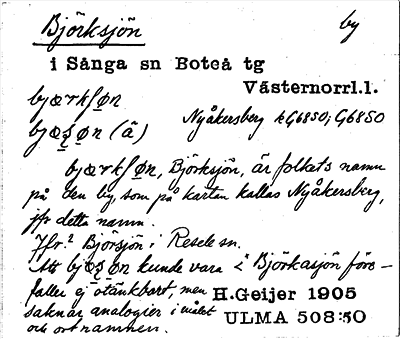 Björksjön by
i Sånga sn Boteå tg
Västernorrl.l.
bjærkʃøn
Nyåkersberg kG6850; G6850
bjæʂøn (ä)
bjærkʃøn, Björksjön, är folkets namn
på den by, som på kartan kallas Nyåkersberg,
jfr detta namn.
Jfr? Björsjön i Resele sn.
Att bjæʂøn kunde vara < *Björkasjön före-
faller ej otänkbart, men
H.Geijer 1905
saknar analogier i målet
ULMA 508:50
och ortnamnen.